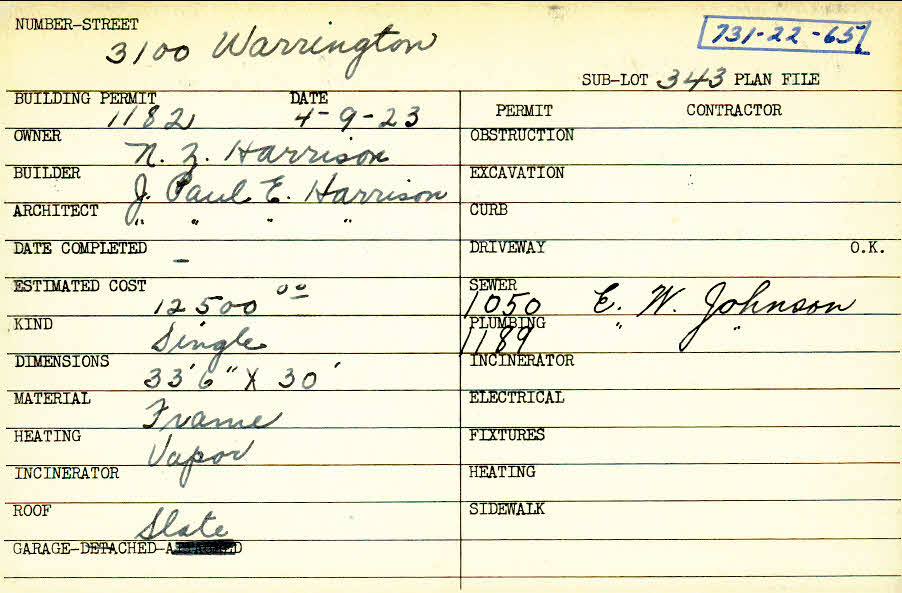 NUMBER-STREET
3100 Warrington
731-22-65
SUB-LOT 343 PLAN FILE
BUILDING PERMIT DATE
1182 4-9-23
OWNER
N. Z. Harrison
BUILDER
J. Paul E. Harrison
ARCHITECT " " " "
DATE COMPLETED
-
ESTIMATED COST
12500 00
KIND
Single
DIMENSIONS
33'6" X 30'
MATERIAL
Frame
HEATING
Vapor
INCINERATOR
ROOF
Slate
GARAGE-DETACHED-
PERMIT CONTRACTOR
OBSTRUCTION
EXCAVATION
CURB
DRIVEWAY O.K.
SEWER
1050 E. W. Johnson
PLUMBING " "
1189
INCINERATOR
ELECTRICAL
FIXTURES
HEATING
SIDEWALK